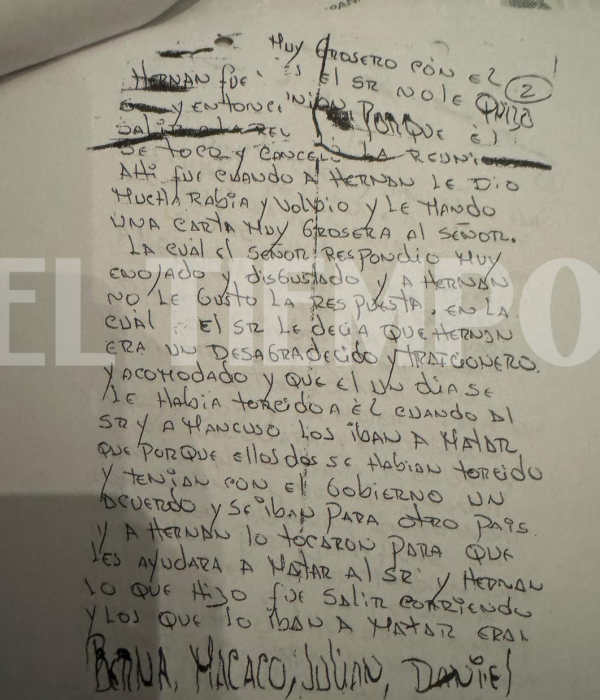 MUY GROSERO CON EL
HERNAN fUE ES EL SR NO LE QUISO
2
Y ENTONC
PORQUE EL
SE TOCO Y CANCELO LA REUNI
AHI fUE CUANDO A HERNAN LE DIO
MUCHA RABIA Y VOLVIO Y LE MANDO
UNA CARTA MUY GROSERA AL SEÑOR.
LA CUAL El SEÑOR RESPONDIO MUY
ENOJADO Y DISGUSTADO Y A HERNAN
NO LE GUSTO LA RESPUESTA. EN LA
CUAL El SR LE DECIA QUE HERNAN
ERA UN DESAGRADECIDO Y TRAICIONERO.
Y ACOMODADO Y QUE El UN DIA SE
LE HABIA TORCIDO A EL CUANDO Al
SR Y A MANCUSO LOS IBAN A MATAR
QUE PORQUE ELLOS DOS SE HABIAN TORCIDO
Y TENIAN CON El GOBIERNO UN
ACUERDO Y SE IBAN PARA OTRO PAIS.
Y A HERNAN lO TOCARON PARA QUE
LES AYUDARA A MATAR Al SR Y HERNAN
LO QUE HIZO fUE SALIR CORRIENDO
Y LOS QUE lO IBAN A MATAR ERAN
BERNA, MACACO, JULIAN, DANIEl
EL TIEMPO